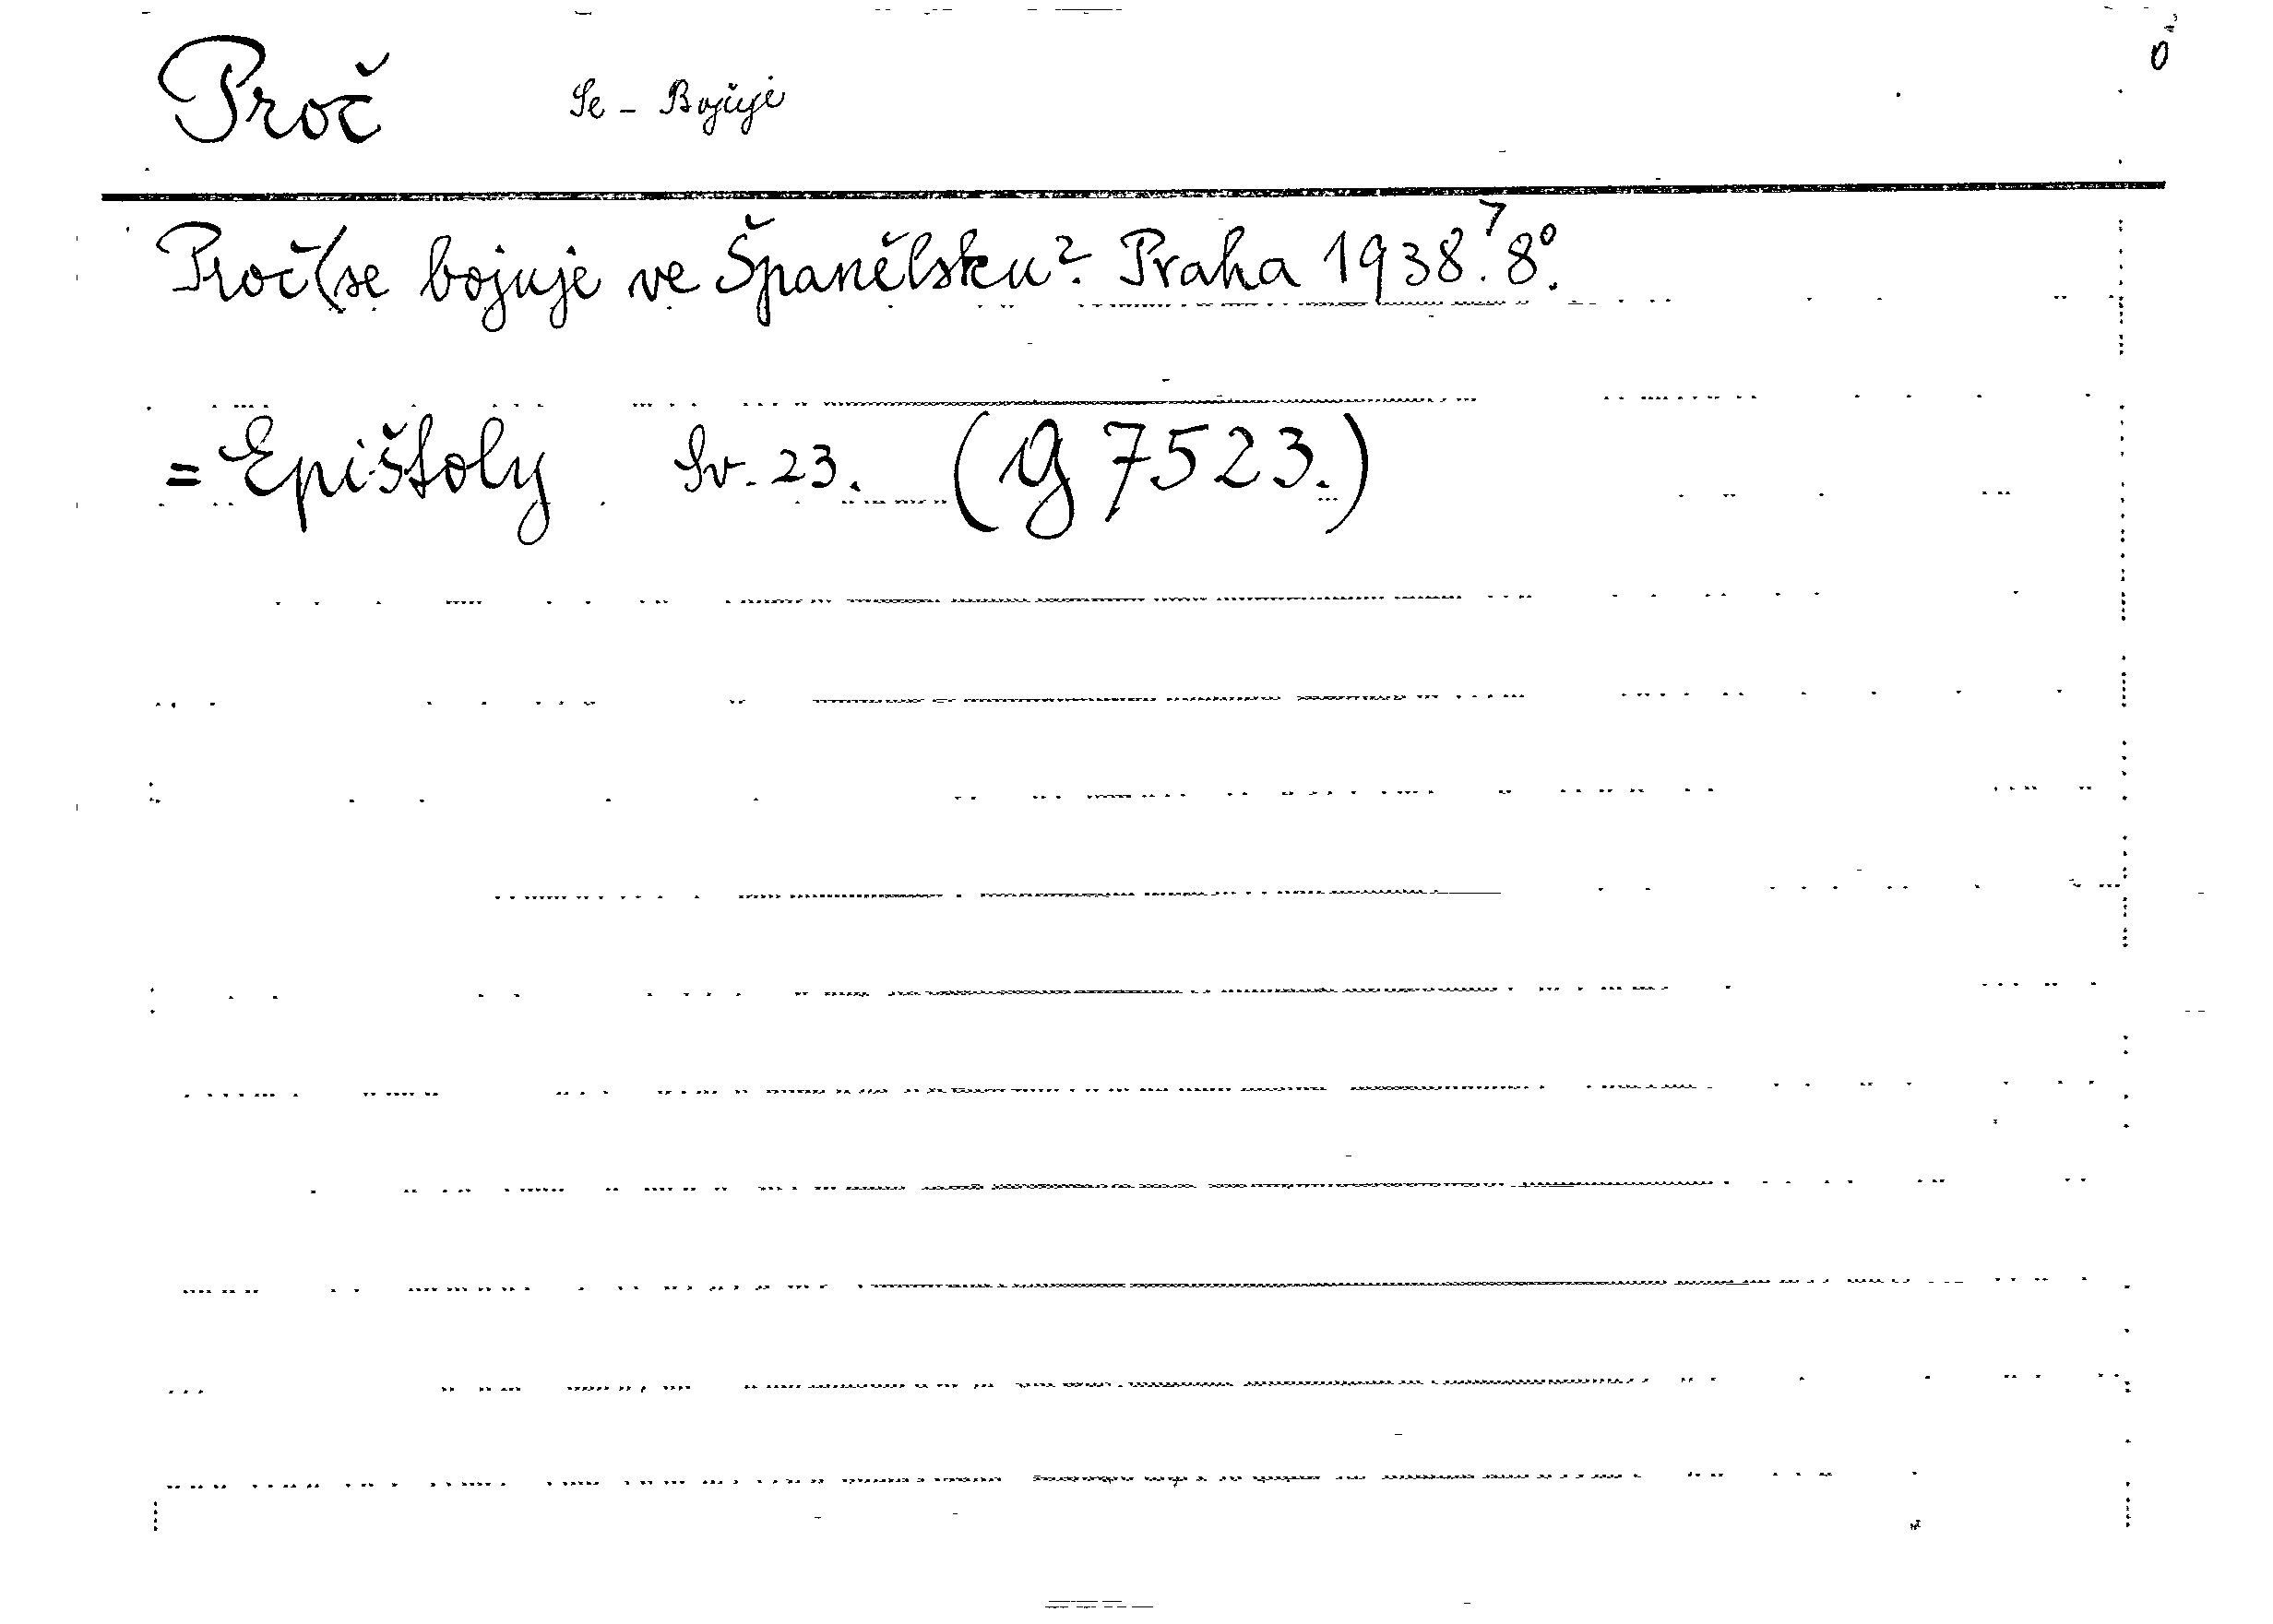 Proč Se - Bojuje 0
Proč (se bojuje ve Španělsku? Praha 1938. 8°.
= Epištoly Sv. 23. (g 7523.)